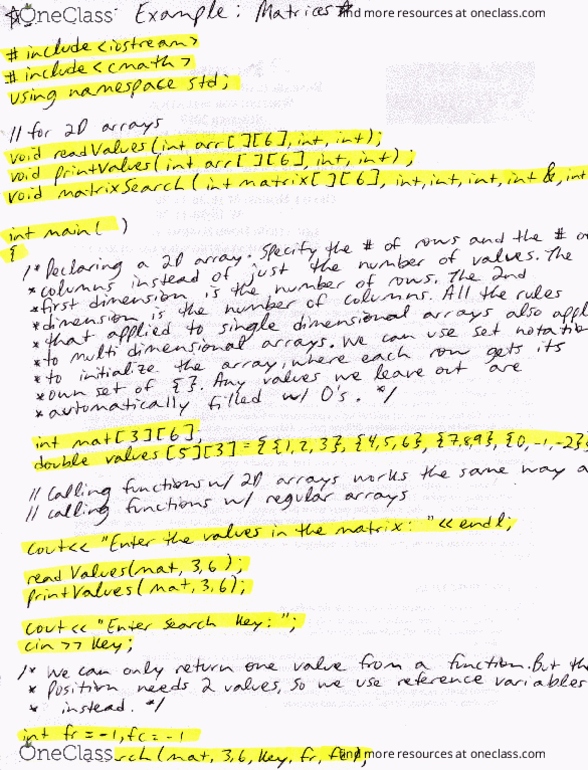 OneClass Example: Matrices
find more resources at oneclass.com
#include <iostream>
#include <cmath>
using namespace std;
// for 2D arrays
void readValues(int arr[][6], int, int);
void printValues(int arr[][6], int, int);
void matrixSearch(int matrix[][6], int, int, int, int &, int
int main()
{
/* Declaring a 2D array. Specify the # of rows and the #
* columns instead of just the number of values. The
* first dimension is the number of rows. The 2nd
* dimension is the number of columns. All the rules
* that applied to single dimensional arrays also appl
* to multi dimensional arrays. We can use set notation
* to initialize the array, where each row gets its
* own set of {}. Any values we leave out are
* automatically filled w/ 0's. */
int mat[3][6];
double values[5][3] = {{1,2,3}, {4,5,6}, {7,8,9}, {0,-1,-2}
// Calling functions w/ 2D arrays works the same way a
// calling functions w/ regular arrays
cout<< "Enter the values in the matrix: " << endl;
readValues(mat, 3,6);
printValues(mat, 3,6);
cout<< "Enter search key: ";
cin >> key;
/* We can only return one value from a function. But th
* Position needs 2 values, so we use reference variables
* instead. */
int fr = -1, fc = -1
OneClass rch(mat, 3,6, key, fr,
find more resources at oneclass.com